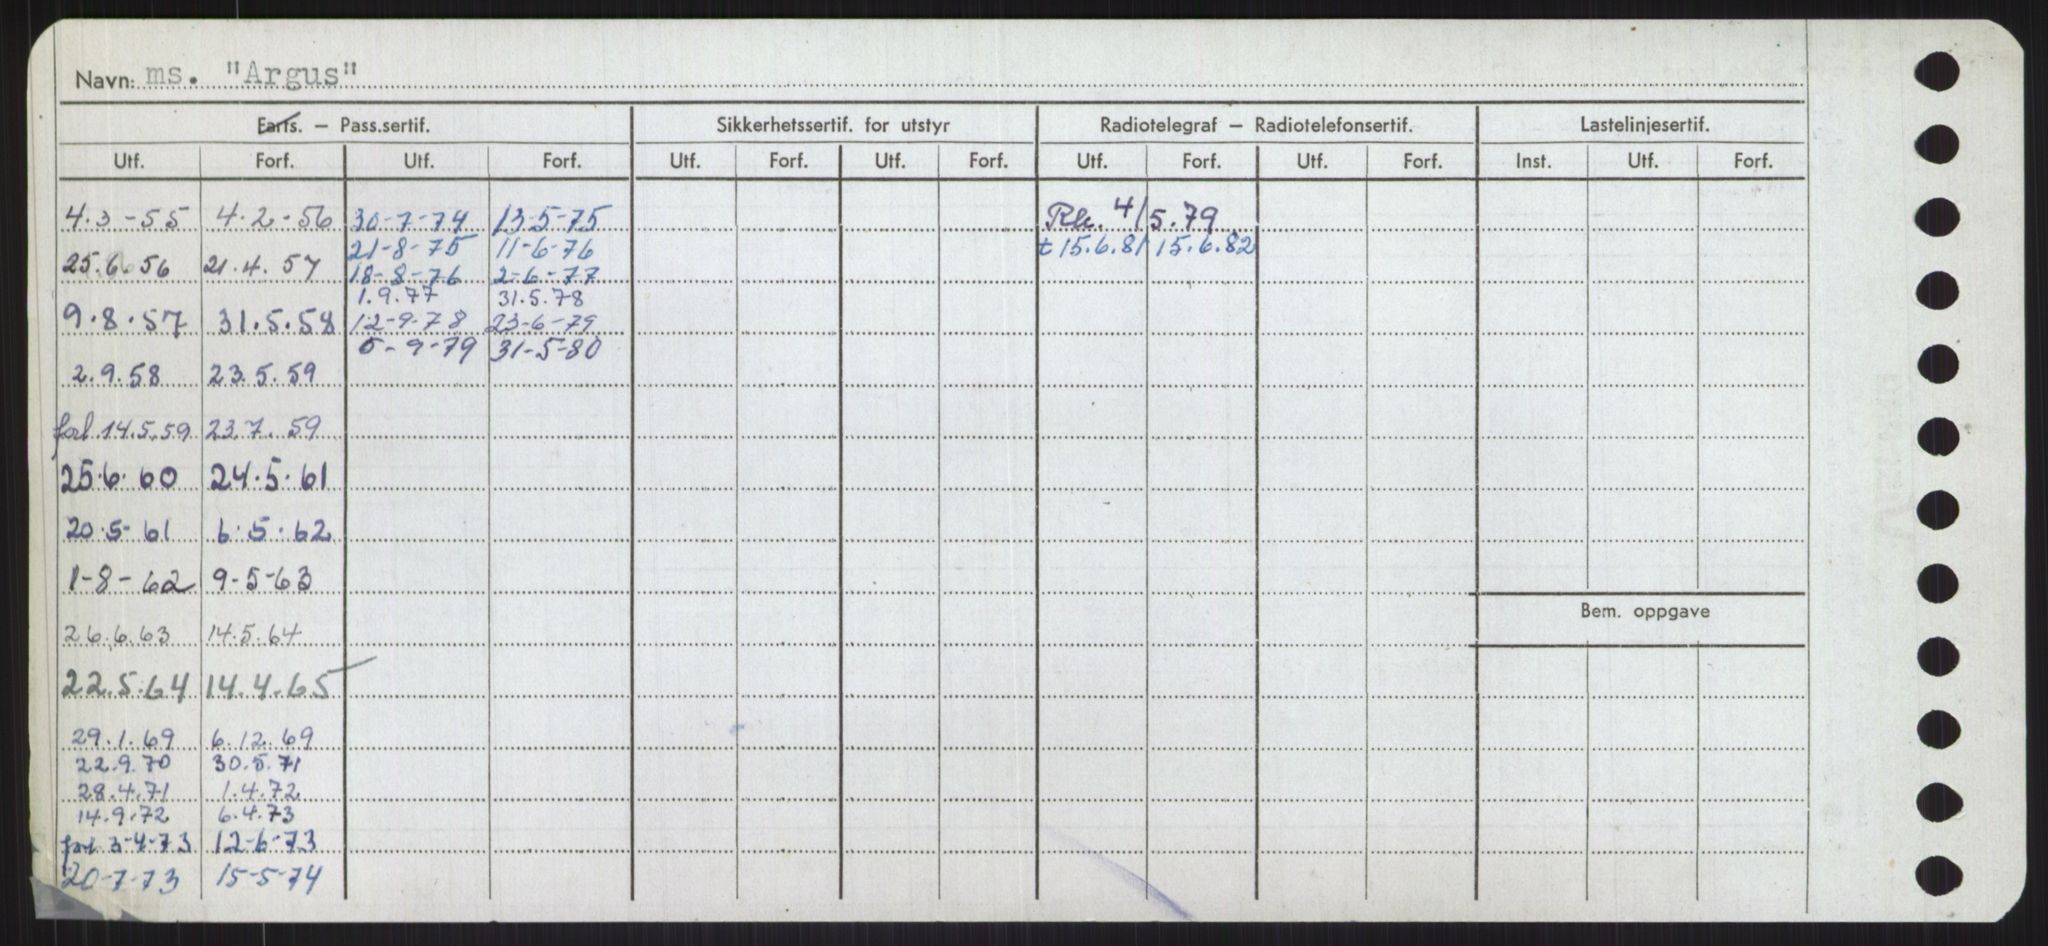 Navn: ms. "Argus"
Farts. – Pass.sertif. Sikkerhetssertif. for utstyr Radiotelegraf – Radiotelefonsertif. Lastelinjesertif.
Utf. Forf. Utf. Forf. Utf. Forf. Utf. Forf. Utf. Forf. Utf. Forf. Inst. Utf. Forf.
4.3-55 4.2-56 30-7-74 13-5-75 4/5.79
21-8-75 11-6-76 t 15.6.81 15.6.82
25.6.56 21.4.57 18-8-76 2-6-77
1.9.77 31.5.78
9.8.57 31.5.58 12-9-78 23-6-79
5-9-79 31-5-80
2.9.58 23.5.59
forl 14.5.59 23.7.59
25.6.60 24.5.61
20.5-61 6.5.62
1-8-62 9-5-63
26.6.63 14.5.64
22.5.64 14.4.65
Bem. oppgave
29.1.69 6.12.69
22.9.70 30.5.71
28.4.71 1.4.72
14.9.72 6.4.73
forl 3-4-73 12-6-73
20-7-73 15-5-74